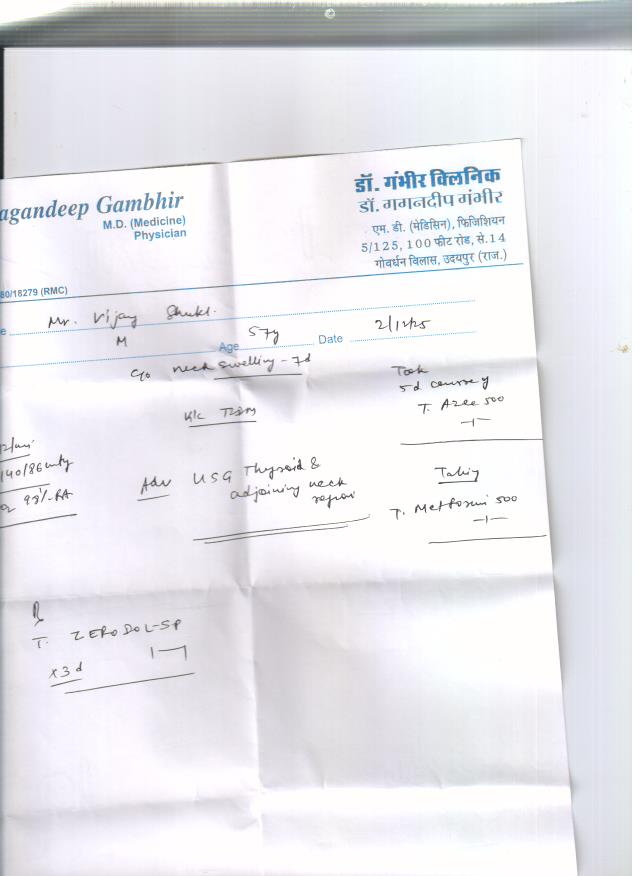 agandeep Gambhir
M.D. (Medicine)
Physician
डॉ. गंभीर क्लिनिक
डॉ. गगनदीप गंभीर
एम. डी. (मेडिसिन), फिजिशियन
5/125, 100 फीट रोड, से.14
गोवर्धन विलास, उदयपुर (राज.)
80/18279 (RMC)
e Mr. Vijay
M Age 57y Date 2/12/25
C/o neck swelling - 7d
K/c
Took
5d course of
T. Azee 500
140/86
98% RA
Adv USG Thyroid &
adjoining neck
region
Taking
T. Metformin 500
Rx
T. ZERODOL-SP
x3d